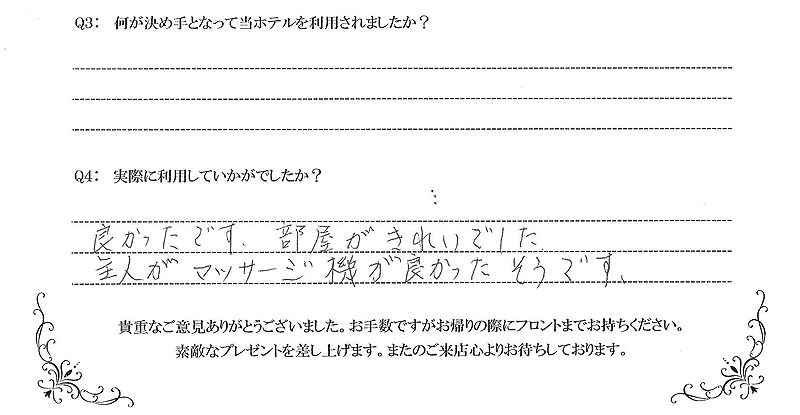 Q3: 何が決め手となって当ホテルを利用されましたか？
Q4: 実際に利用していかがでしたか？
良かったです、部屋がきれいでした
主人がマッサージ機が良かったそうです、
貴重なご意見ありがとうございました。お手数ですがお帰りの際にフロントまでお持ちください。
素敵なプレゼントを差し上げます。またのご来店心よりお待ちしております。